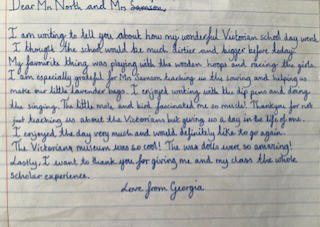 Dear Mr North and Mrs Samson,
I am writing to tell you about how my wonderful Victorian school day went.
I thought the school would be much dirtier and bigger before today.
My favorite thing was playing with the wooden hoops and racing the girls.
I am especially grateful for Mrs Samson teaching us the sewing and helping us
make our little lavender bags. I enjoyed writing with the dip pens and doing
the singing. The little mole and bird fascinated me so much! Thankyou for not
just teaching us about the Victorians but giving us a day in the life of one.
I enjoyed the day very much and would definitely like to go again.
The Victorians museum was so cool! The wax dolls were so amazing!
Lastly, I want to thank you for giving me and my class the whole
scholar experience.
Love from Georgia